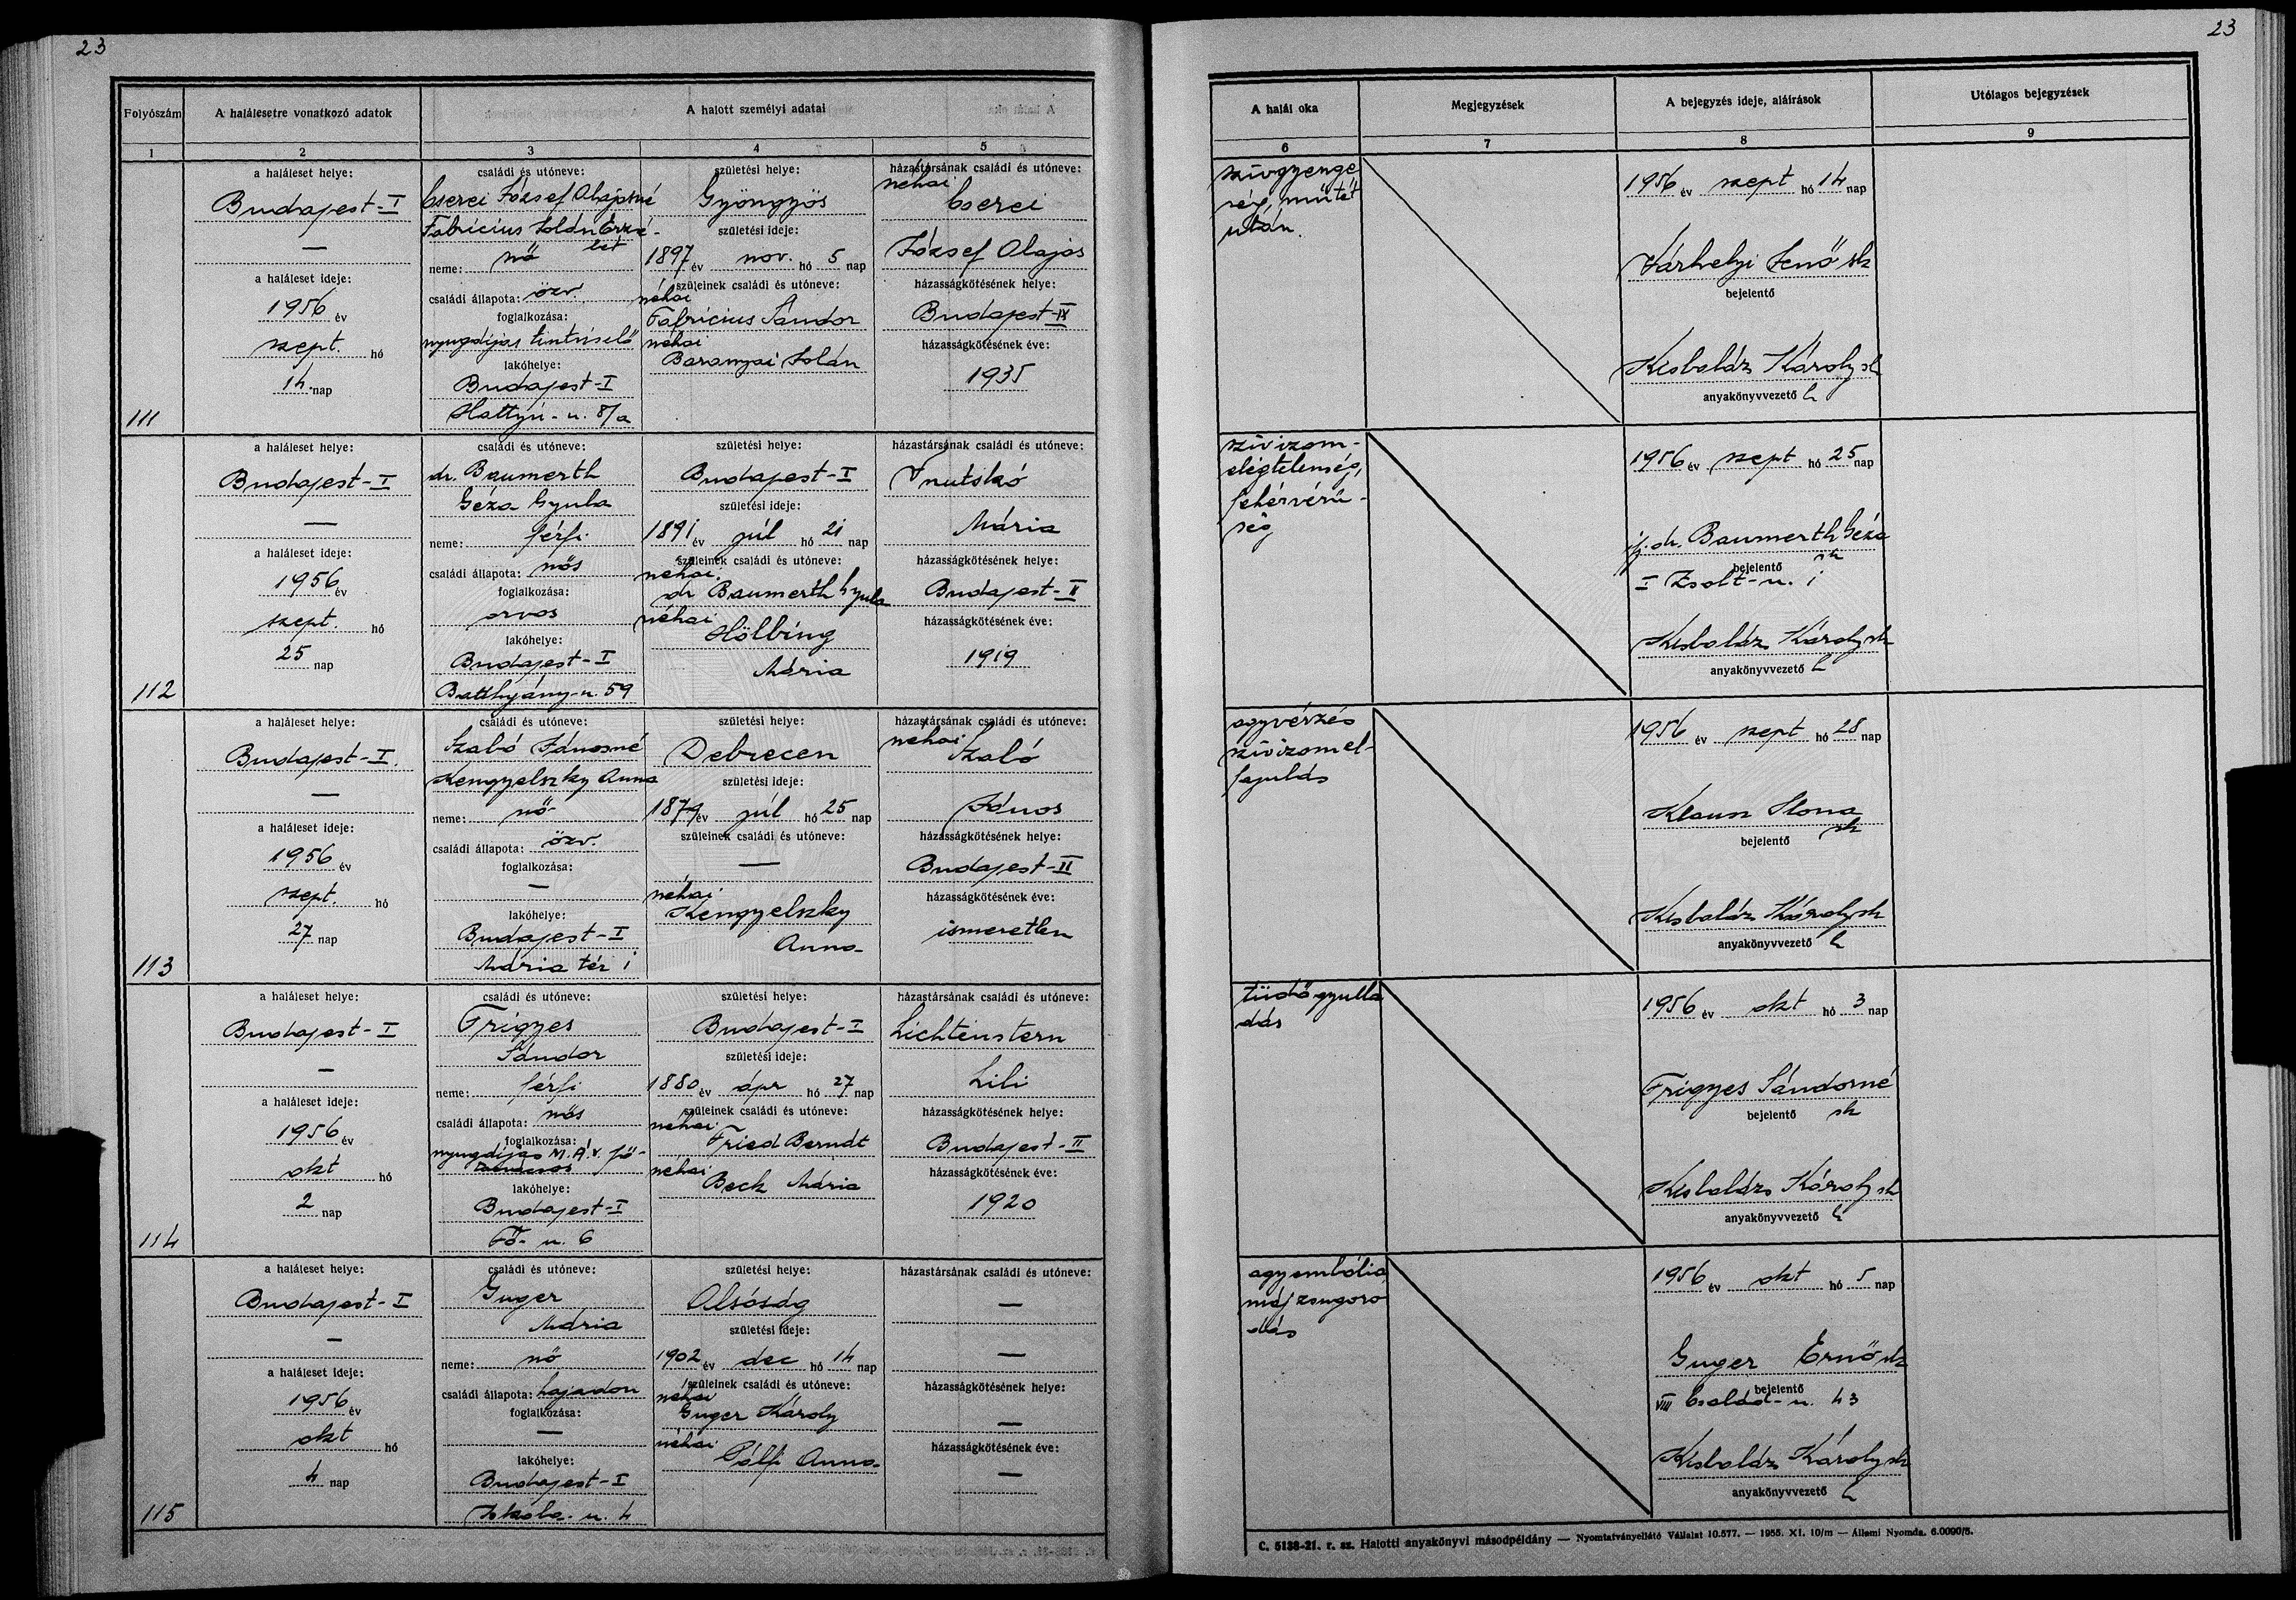 23
23
Folyószám
A halálesetre vonatkozó adatok
A halott személyi adatai
1
2
3
4
5
a haláleset helye:
Budapest-I
—
a haláleset ideje:
1956 év
szept. hó
14. nap
111
családi és utóneve:
Cserei József Alajosné
Fabricius Ilolán Erzsé-
bet
neme: nő
családi állapota: özv.
foglalkozása:
nyugdíjas tisztviselő
lakóhelye:
Budapest-I
Hattyú-u. 8/a
születési helye:
Gyöngyös
születési ideje:
1897 év nov. hó 5 nap
szüleinek családi és utóneve:
néhai
Fabricius Sándor
néhai
Baranyai
házastársának családi és utóneve:
néhai
Cserei
József Alajos
házasságkötésének helye:
Budapest-IX
házasságkötésének éve:
1935
a haláleset helye:
Budapest-I
—
a haláleset ideje:
1956 év
szept. hó
25 nap
112
családi és utóneve:
dr. Baumerth
Géza Gyula
neme: férfi
családi állapota: nős
foglalkozása:
orvos
lakóhelye:
Budapest-I
Batthyány-u. 59
születési helye:
Budapest-I
születési ideje:
1891 év júl hó 21 nap
szüleinek családi és utóneve:
néhai
dr Baumerth Gyula
néhai
Hölbing
Mária
házastársának családi és utóneve:
Vnutskó
Mária
házasságkötésének helye:
Budapest-II
házasságkötésének éve:
1919
a haláleset helye:
Budapest-I.
—
a haláleset ideje:
1956 év
szept. hó
27 nap
113
családi és utóneve:
Szabó Jánosné
Kengyelszky Anna
neme: nő
családi állapota: özv.
foglalkozása:
—
lakóhelye:
Budapest-I
Mária tér 1
születési helye:
Debrecen
születési ideje:
1879 év júl hó 25 nap
szüleinek családi és utóneve:
—
néhai
Kengyelszky
Anna
házastársának családi és utóneve:
néhai
Szabó
János
házasságkötésének helye:
Budapest-II
házasságkötésének éve:
ismeretlen
a haláleset helye:
Budapest-I
—
a haláleset ideje:
1956 év
okt hó
2 nap
114
családi és utóneve:
Frigyes
Sándor
neme: férfi
családi állapota: nős
foglalkozása:
nyugdíjas M.Á.V. fő-
tanácsos
lakóhelye:
Budapest-I
Fő-u. 6
születési helye:
Budapest-I
születési ideje:
1880 év ápr hó 27 nap
szüleinek családi és utóneve:
néhai
Fried Berndt
néhai
Beck Mária
házastársának családi és utóneve:
Lichtenstern
Lili
házasságkötésének helye:
Budapest-II
házasságkötésének éve:
1920
a haláleset helye:
Budapest-I
—
a haláleset ideje:
1956 év
okt hó
4 nap
115
családi és utóneve:
Guger
Mária
neme: nő
családi állapota: hajadon
foglalkozása:
—
lakóhelye:
Budapest-I
Iskola-u. 4
születési helye:
Alsóság
születési ideje:
1902 év dec hó 14 nap
szüleinek családi és utóneve:
néhai
Guger Károly
néhai
Pálfi Anna
házastársának családi és utóneve:
—
—
házasságkötésének helye:
—
házasságkötésének éve:
—
A halál oka
Megjegyzések
A bejegyzés ideje, aláírások
Utólagos bejegyzések
6
7
8
9
szívgyenge
ség, műtét
után.
1956 év szept hó 14 nap
Várhelyi Jenő sk
bejelentő
Kisbaláz Károly sk
anyakönyvvezető h
szívizom-
elégtelenség,
fehérvérű-
ség
1956 év szept hó 25 nap
ifj. dr. Baumerth Géza
sk
bejelentő
I Zsolt-u. 1
Kisbaláz Károly sk
anyakönyvvezető h
agyvérzés
szívizomel-
fajulás
1956 év szept hó 28 nap
Klausz Ilona
sk
bejelentő
Kisbaláz Károly sk
anyakönyvvezető h
tüdőgyulla
dás
1956 év okt hó 3 nap
Frigyes Sándorné
bejelentő sk
Kisbaláz Károly sk
anyakönyvvezető h
agyembólia
májzsugoro
dás
1956 év okt hó 5 nap
Guger Ernő sk
bejelentő
VIII Család-u. 43
Kisbaláz Károly sk
anyakönyvvezető h
C. 5138-21. r. sz. Halotti anyakönyvi másodpéldány — Nyomtatványellátó Vállalat 10.577. — 1955. XI. 10/m — Állami Nyomda. 6.0090/5.